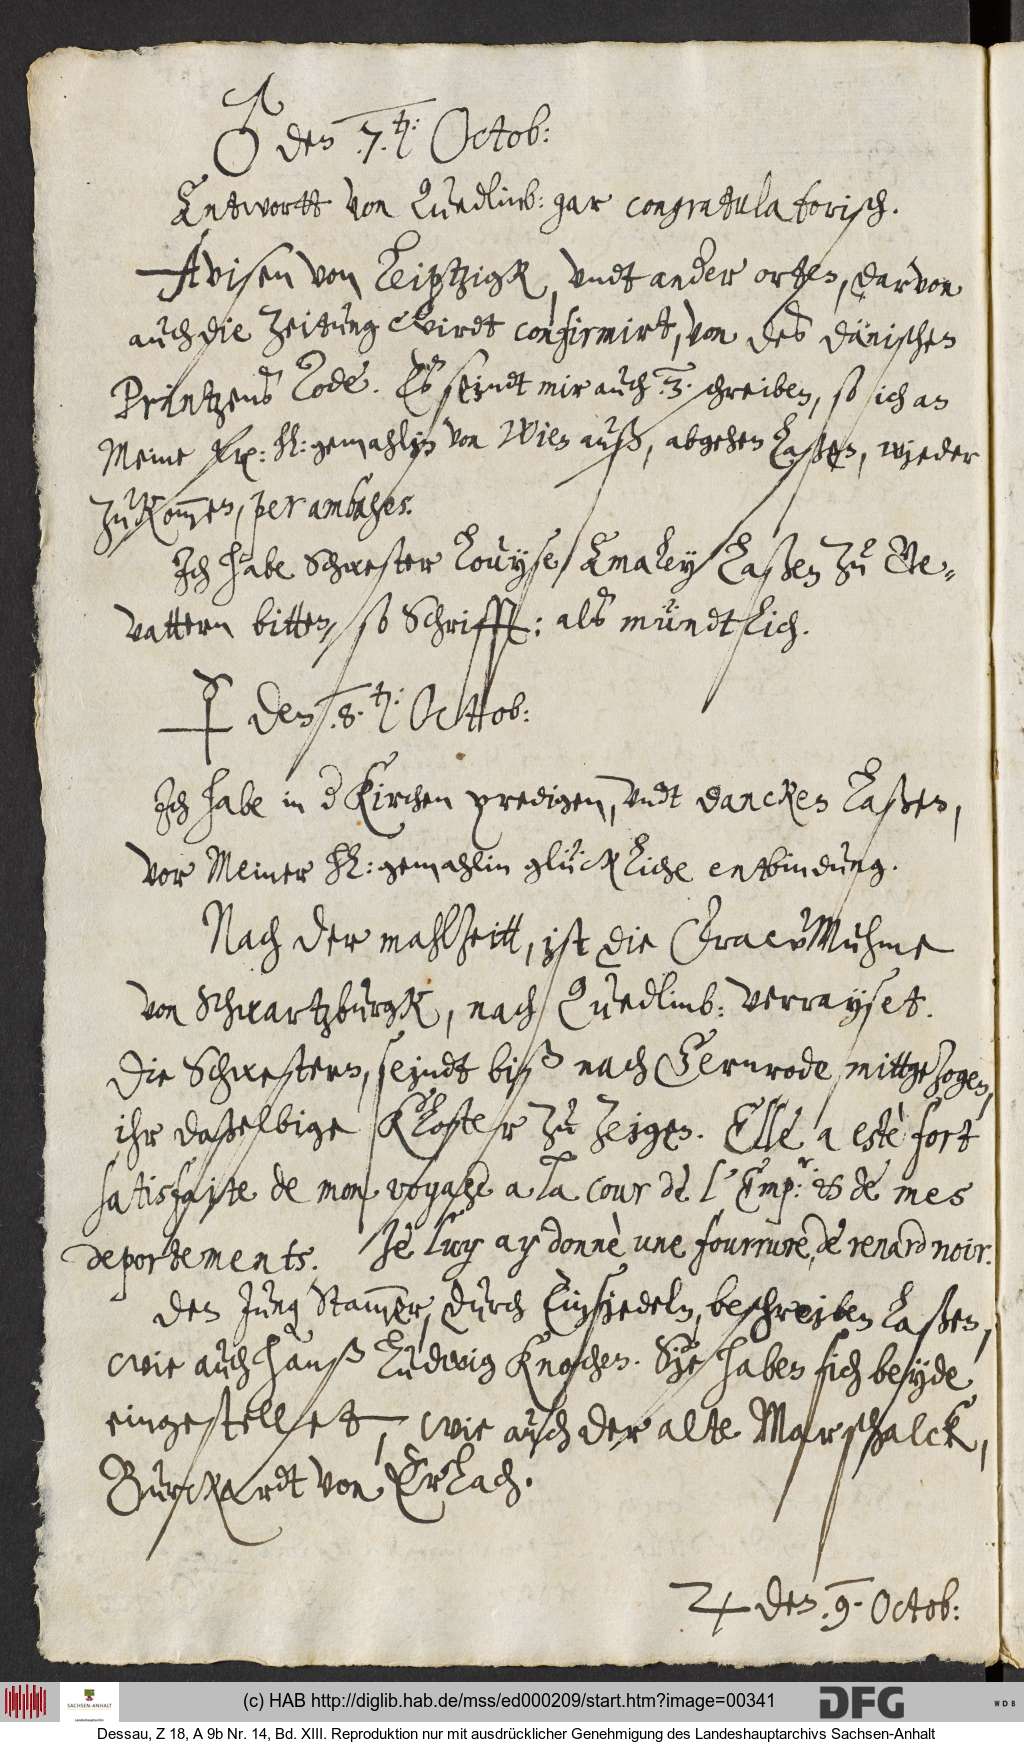 ♂ den .7.ten: Octob:
Entwortt von Quedlimb: gar congratulatorisch.
Avisen von Leiptzigk, vndt ander orten, darvon
auch die zeitung wirdt confirmirt, von des dänischen
Printzens Tode. Es seindt mir auch .3. schreiben, so ich an
Meine Fr: h: gemahlin von Wien auß, abgehen laßen, wieder
zukom̅en, per ambages.
Ich habe Schwester Louyse Amaley laßen zu Ge-
vattern bitten, so Schrifft: als mündtlich.
☿ den .8.ten: Octtob:
Ich habe in d Kirchen predigen, vndt dancken laßen,
vor Meiner h: gemahlin glückliche entbindung.
Nach der mahlzeitt, ist die Graev Muhme
von Schwartzburgk, nach Quedlimb: verrayset.
Die Schwestern, seindt biß nach Gernrode mittgezogen,
ihr daßelbige Kloster zu zeigen. Elle a estè fort
satisfaite de mon voyage a la cour de l'Emp.r: et de mes
deportements. Je luy ay donnè une fourrure, de renard noir.
Den Jung Stam̅er, durch Einsiedeln, beschreiben laßen,
wie auch Hanß Ludwig Knochen. Sie haben sich beyde
eingestellet, wie auch der alte Marschalck,
Burckardt von Erlach.
♃ den .9. Octob:
(c) HAB http://diglib.hab.de/mss/ed000209/start.htm?image=00341
SACHSEN-ANHALT
Landeshauptarchiv
DFG
WDB
Dessau, Z 18, A 9b Nr. 14, Bd. XIII. Reproduktion nur mit ausdrücklicher Genehmigung des Landeshauptarchivs Sachsen-Anhalt